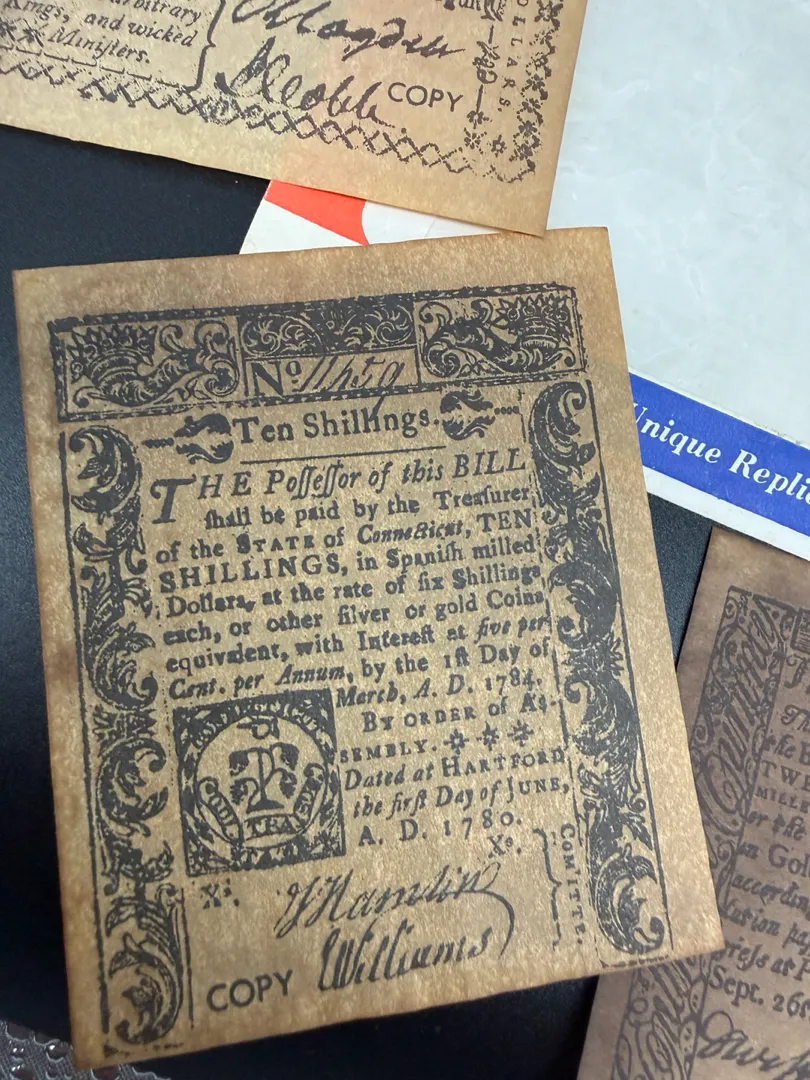 arbitrary
Kings, and wicked
Ministers.
COPY
DOLLARS.
Unique
No 11459
Ten Shillings.
THE Poſſeſſor of this BILL
ſhall be paid by the Treaſurer
of the STATE of Connecticut, TEN
SHILLINGS, in Spaniſh milled
Dollars, at the rate of ſix Shillings
each, or other ſilver or gold Coins
equivalent, with Intereſt at five per
Cent. per Annum, by the 1ſt Day of
March, A. D. 1784.
BY ORDER of AS-
SEMBLY.
Dated at HARTFORD
the firſt Day of JUNE,
A. D. 1780.
Xs.
COMITTE.
Xs.
J Hamlin
E Williams
COPY
TW
MILL
or the
in Gol
accordin
Sept. 26